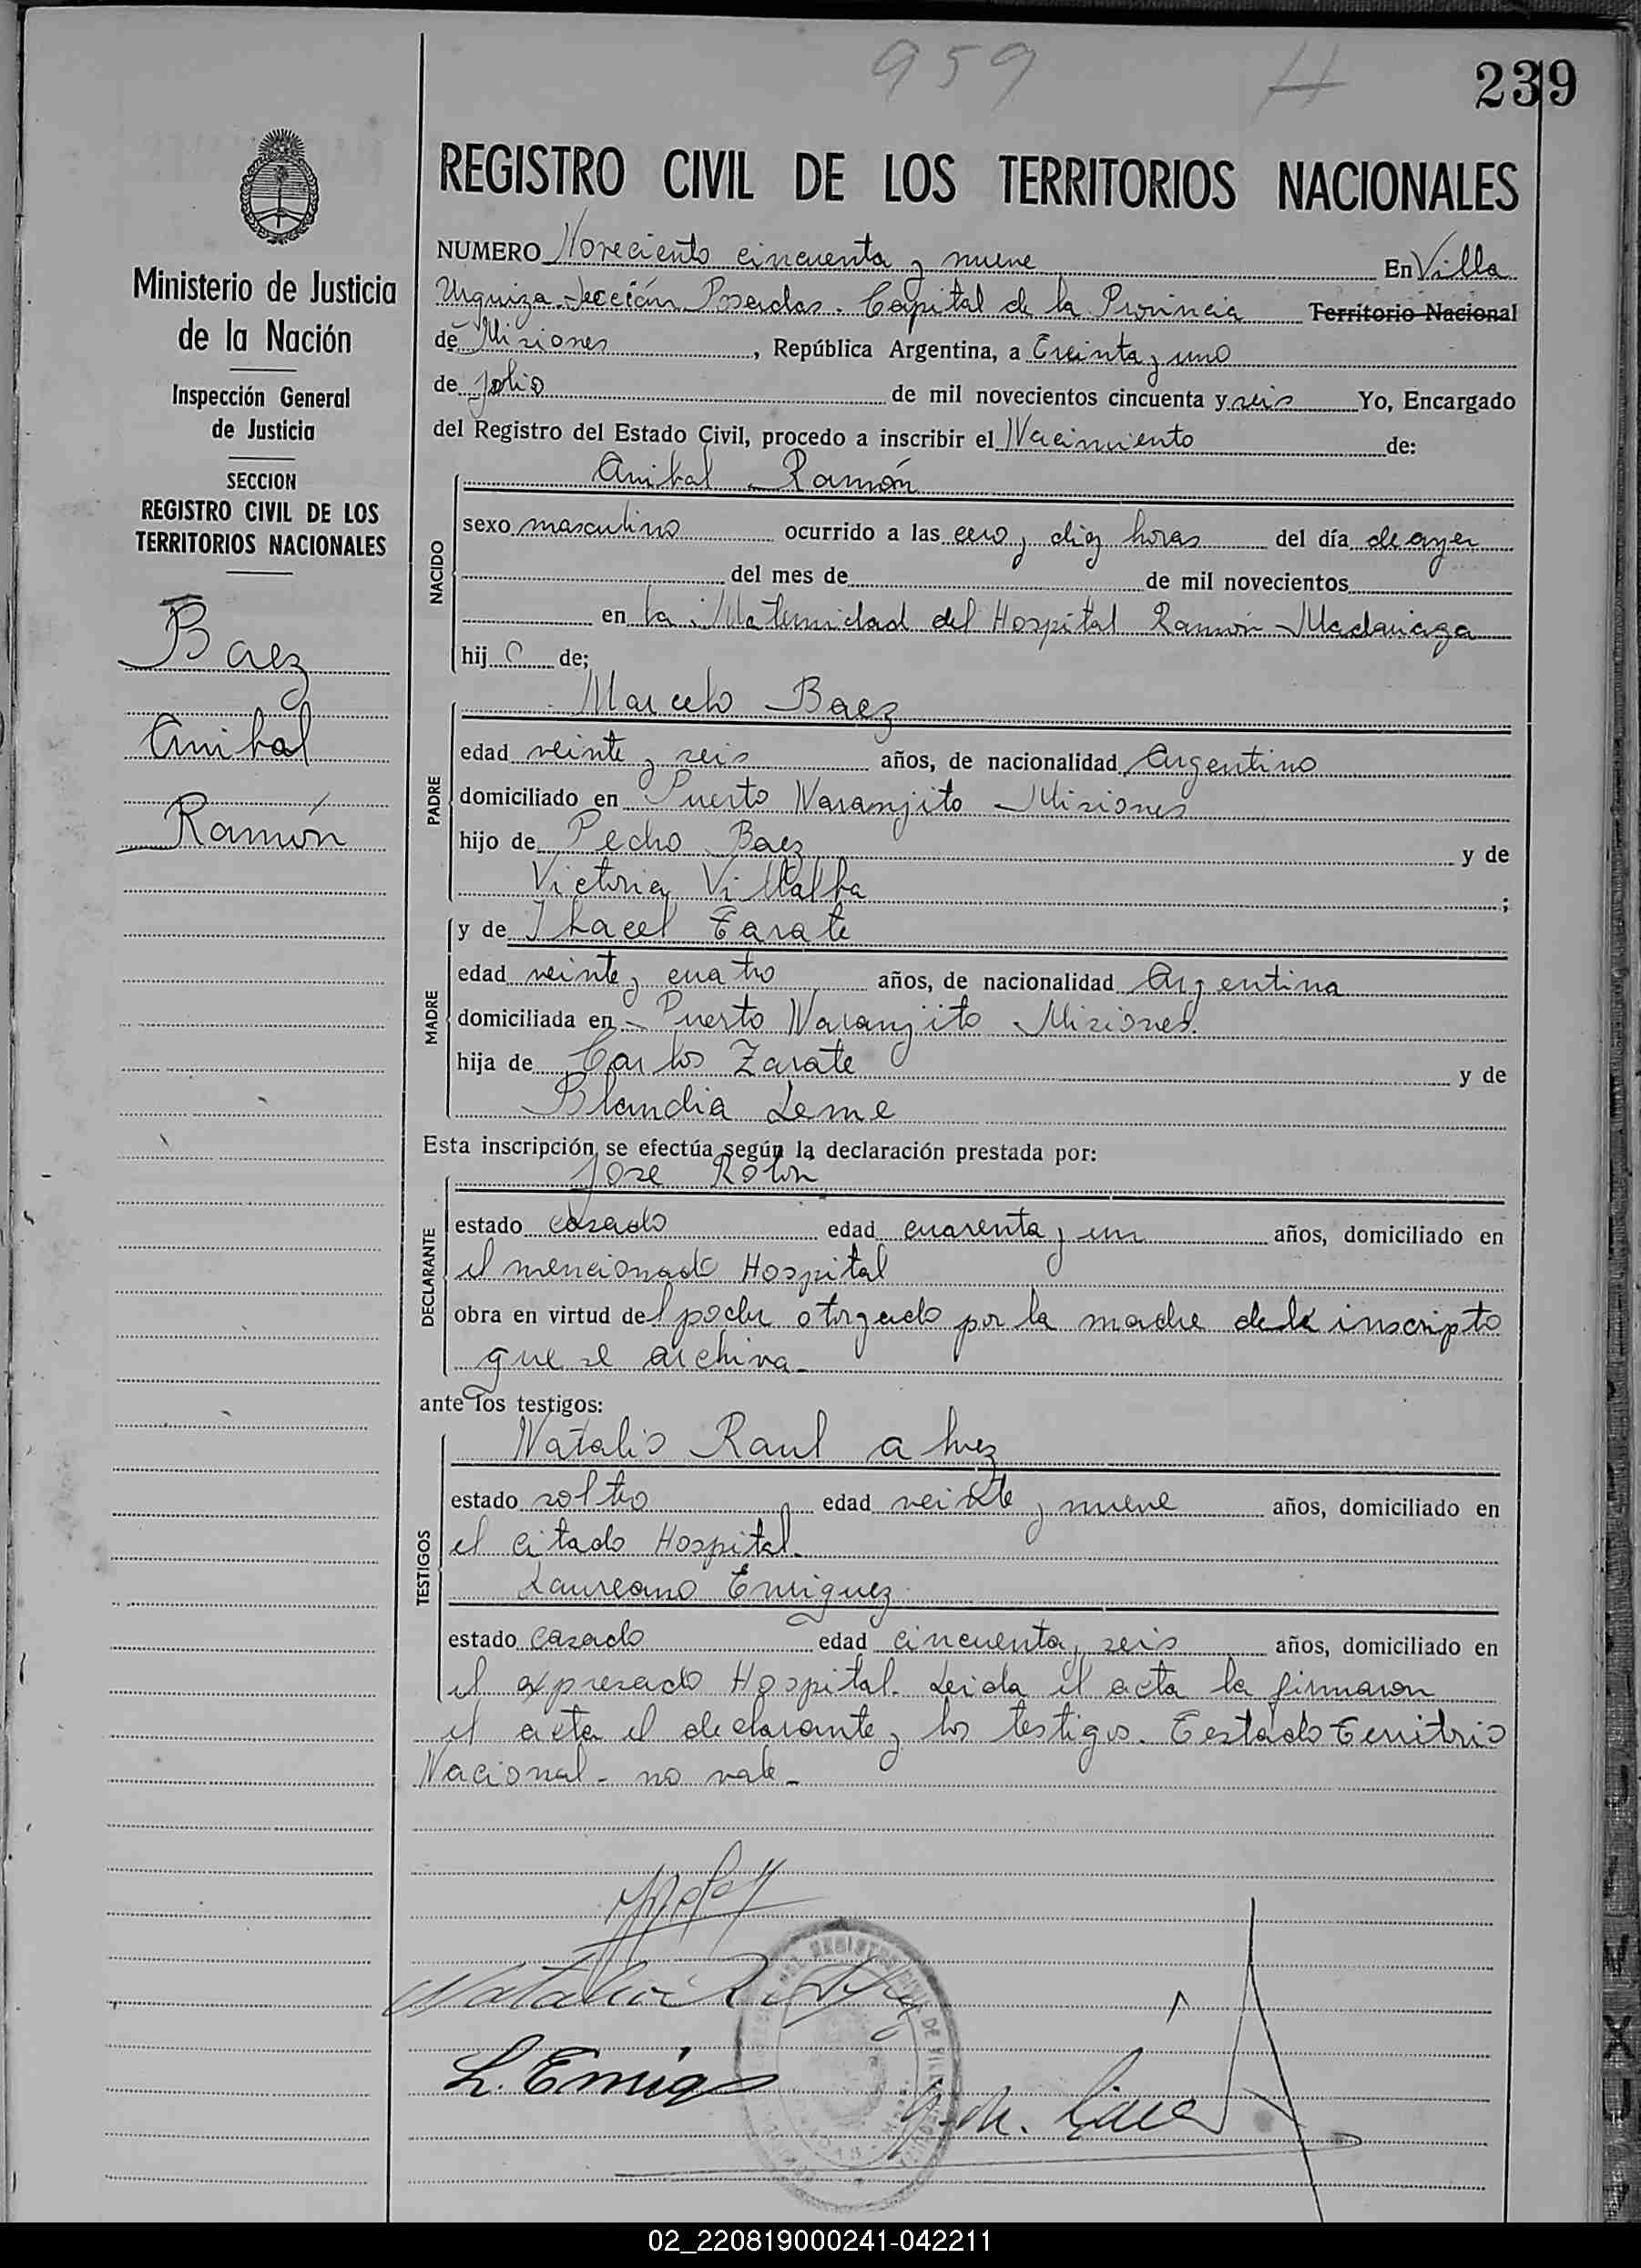 959 H
239
REGISTRO CIVIL DE LOS TERRITORIOS NACIONALES
Ministerio de Justicia
de la Nación
Inspección General
de Justicia
SECCION
REGISTRO CIVIL DE LOS
TERRITORIOS NACIONALES
Baez
Anibal
Ramón
NUMERO Noveciento cincuenta y nueve En Villa
Urquiza Sección Posadas. Capital de la Provincia Territorio Nacional
de Misiones, República Argentina, a Treinta y uno
de Julio de mil novecientos cincuenta y seis Yo, Encargado
del Registro del Estado Civil, procedo a inscribir el Nacimiento de:
NACIDO
Anibal Ramón
sexo masculino ocurrido a las cero y diez horas del día de ayer
del mes de de mil novecientos
en la Maternidad del Hospital Ramón Madariaga
hijo de;
PADRE
Marcelo Baez
edad veinte y seis años, de nacionalidad Argentino
domiciliado en Puerto Naranjito Misiones
hijo de Pedro Baez y de
Victoria Villalba ;
MADRE
y de Ysacel Tarate
edad veinte y cuatro años, de nacionalidad Argentina
domiciliada en Puerto Naranjito Misiones.
hija de Carlos Zarate y de
Blandia Leme
Esta inscripción se efectúa según la declaración prestada por:
DECLARANTE
Jose Rolon
estado casado edad cuarenta y un años, domiciliado en
el mencionado Hospital
obra en virtud del poder otorgado por la madre del inscripto
que se archiva
ante los testigos:
TESTIGOS
Natalio Raul
estado soltero edad veinte y nueve años, domiciliado en
el citado Hospital.
Laureano Enriquez
estado casado edad cincuenta y seis años, domiciliado en
el expresado Hospital. Leida el acta la firmaron
el acta el declarante y los testigos. Testado Territorio
Nacional - no vale -
L. Enriq
02_220819000241-042211